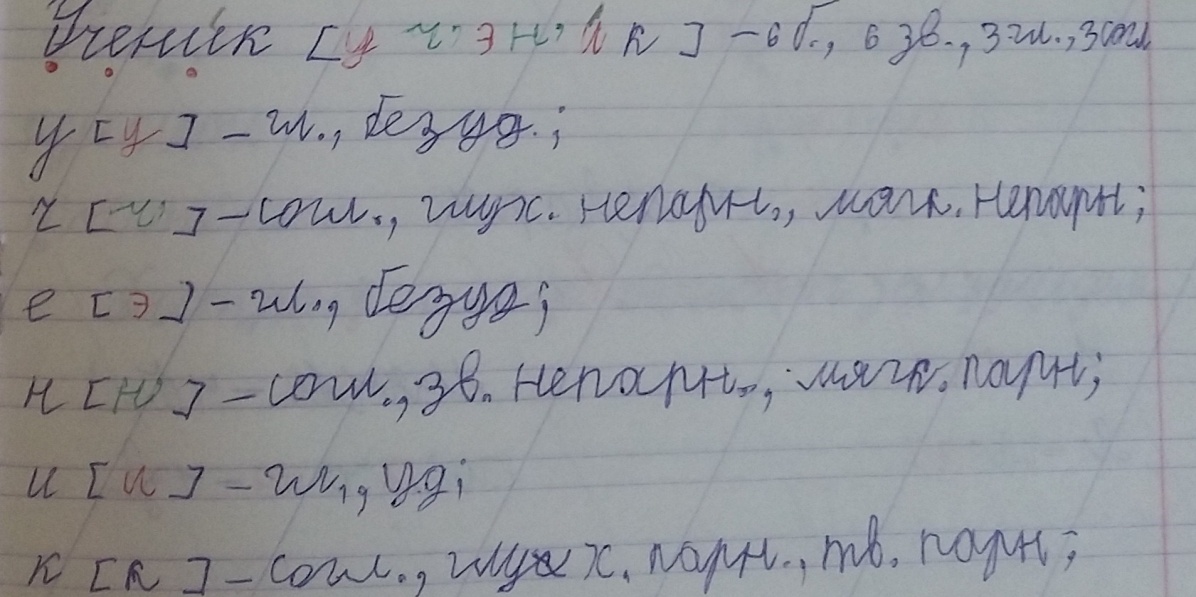 Ученик [у ч, э н, и́ к] – 6 б., 6 зв., 3 гл., 3 согл
у [у] – гл., безуд.;
ч [ч,] – согл., глух. непарн., мягк. непарн;
е [э] – гл., безуд;
н [н,] – согл., зв. непарн., мягк. парн;
и [и] – гл., уд;
к [к] – согл., глух. парн., тв. парн;